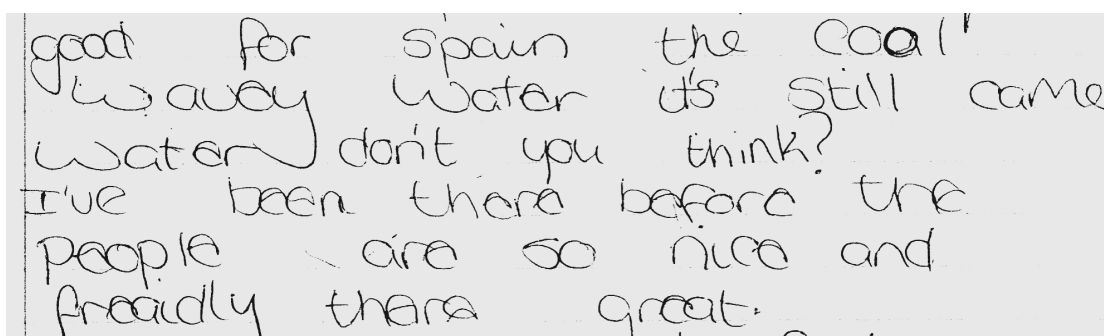 good for spain the coal'
wavey water it's still came
water don't you think?
I've been there before the
people are so nice and
freaidly there great.